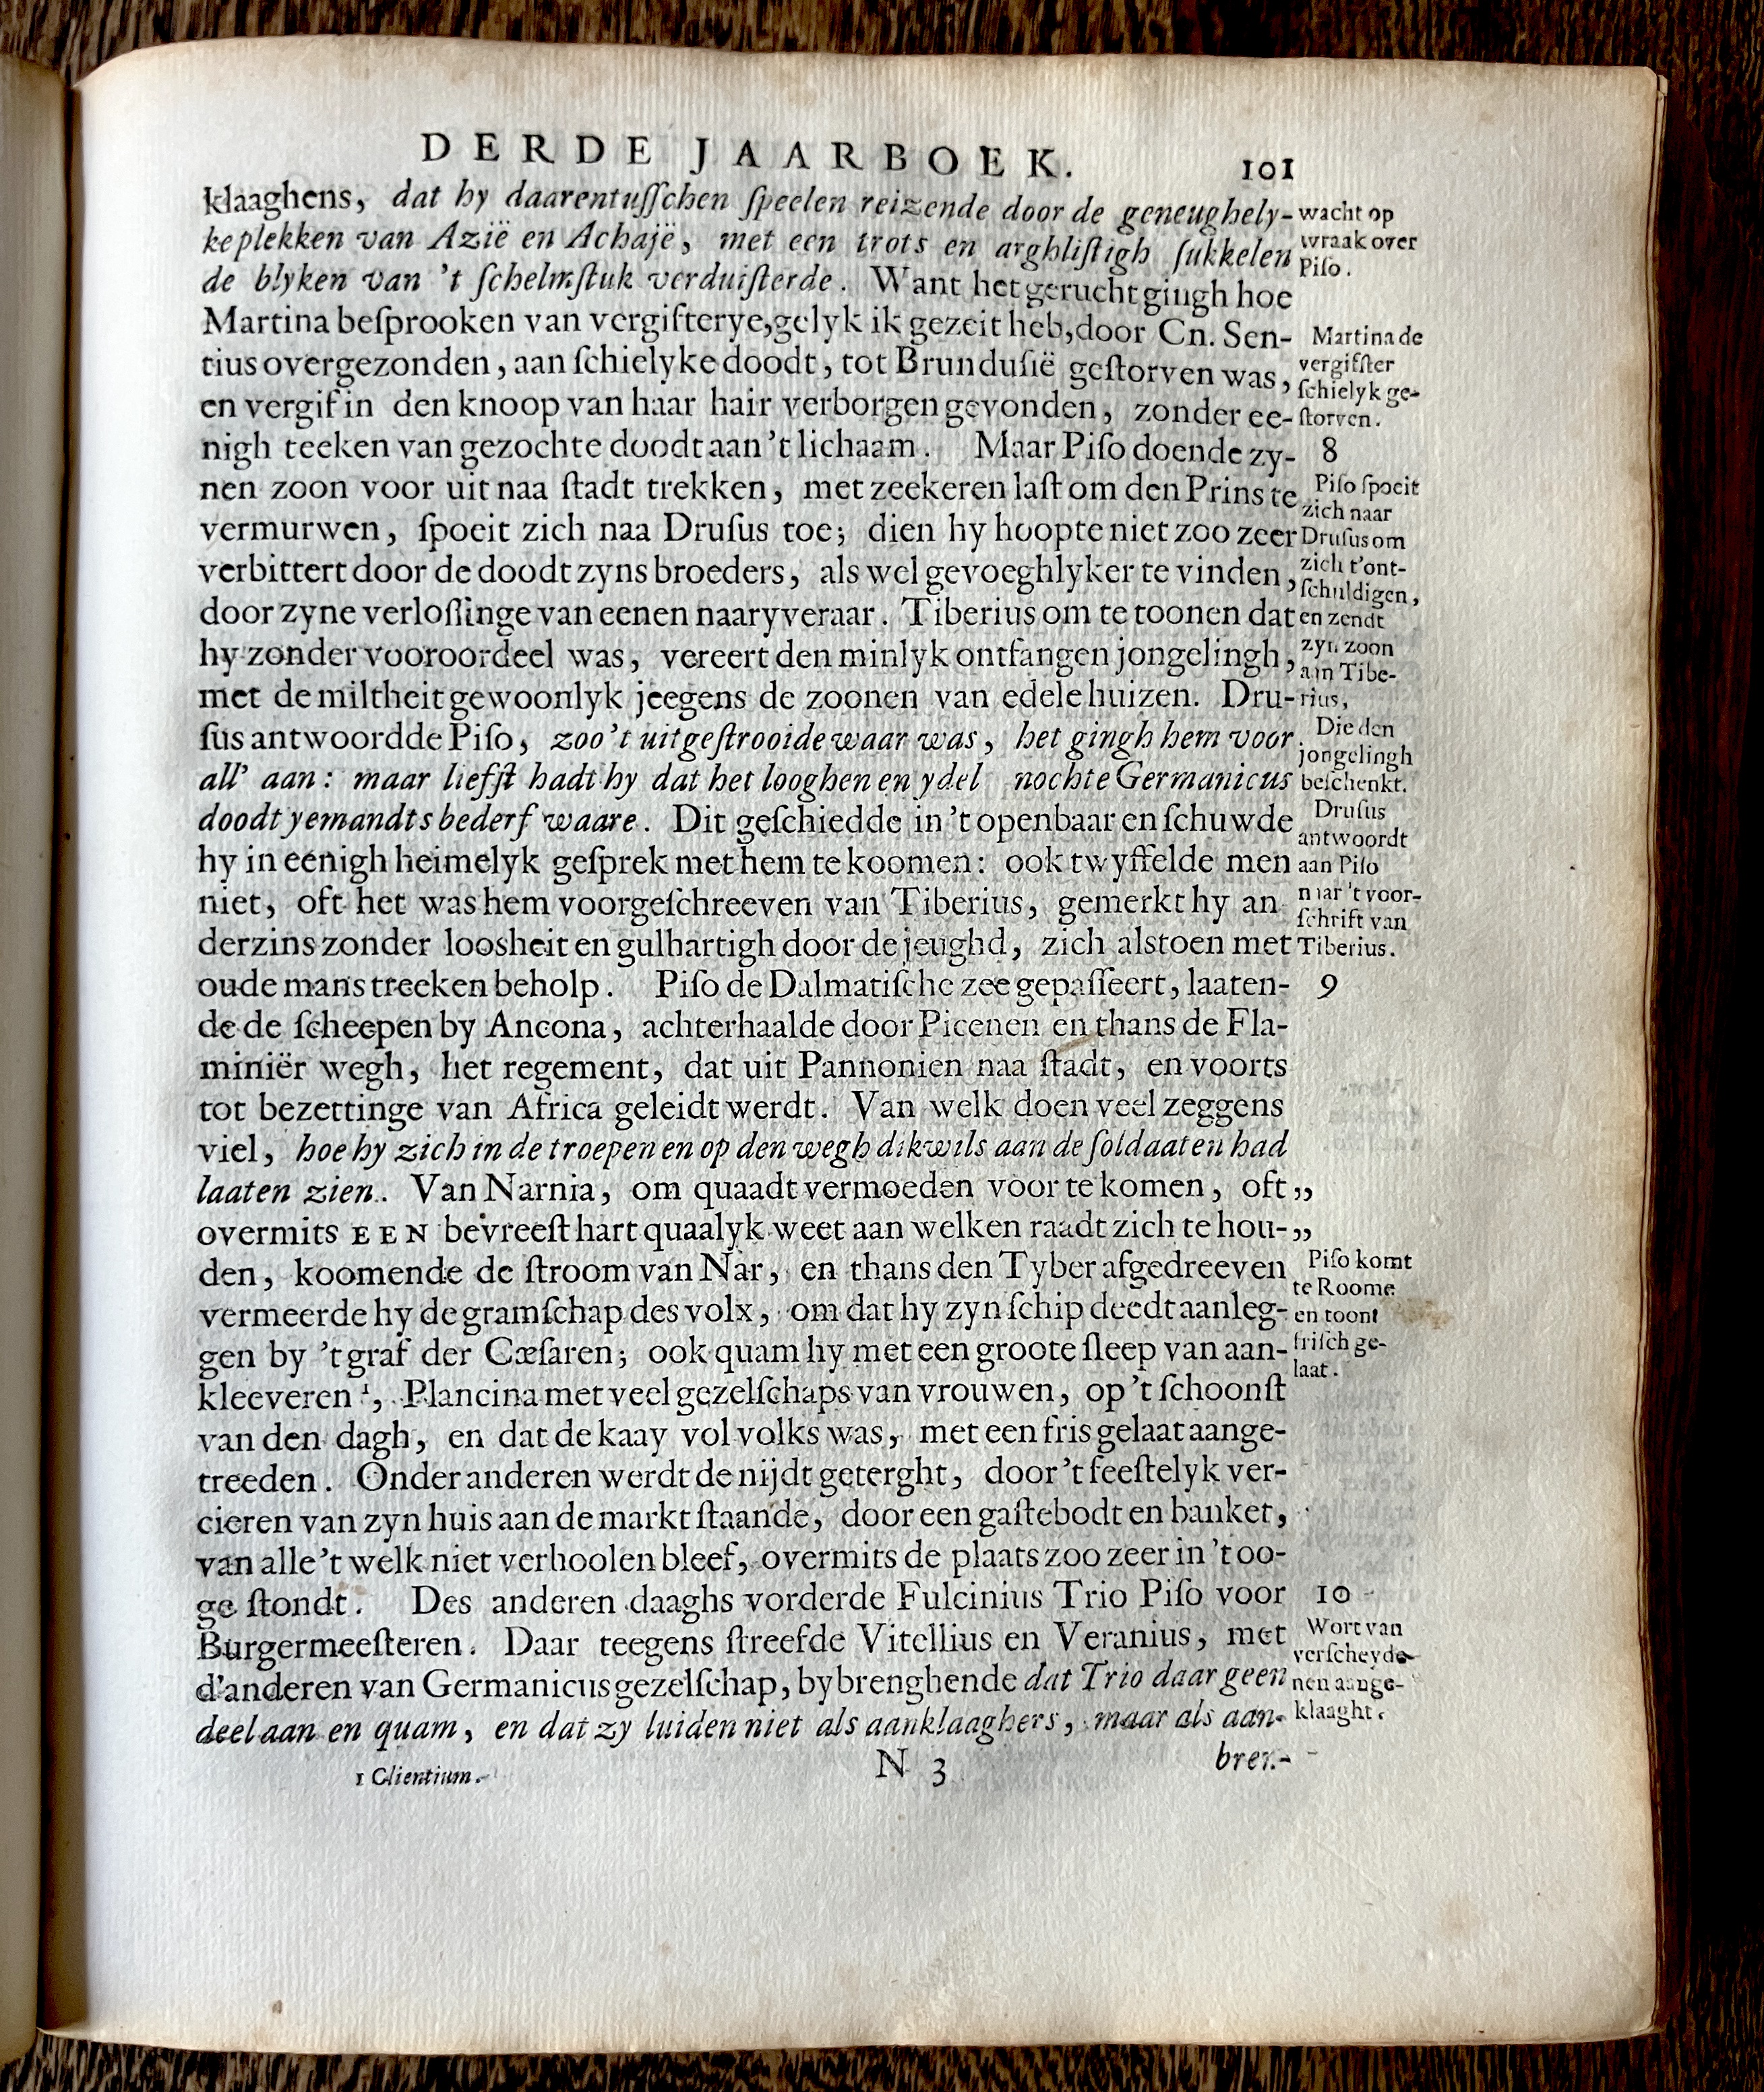 DERDE JAARBOEK. 101
klaaghens, dat hy daarentuſſchen ſpeelen reizende door de geneughely-
ke plekken van Azië en Achajë, met een trots en arghliſtigh ſukkelen
de blyken van 't ſchelmſtuk verduiſterde. Want het gerucht gingh hoe
Martina beſprooken van vergifterye, gelyk ik gezeit heb, door Cn. Sen-
tius overgezonden, aan ſchielyke doodt, tot Brunduſië geſtorven was,
en vergif in den knoop van haar hair verborgen gevonden, zonder ee-
nigh teeken van gezochte doodt aan 't lichaam. Maar Piſo doende zy-
nen zoon voor uit naa ſtadt trekken, met zeekeren laſt om den Prins te
vermurwen, ſpoeit zich naa Druſus toe; dien hy hoopte niet zoo zeer
verbittert door de doodt zyns broeders, als wel gevoeghlyker te vinden,
door zyne verloſſinge van eenen naaryveraar. Tiberius om te toonen dat
hy zonder vooroordeel was, vereert den minlyk ontfangen jongelingh,
met de miltheit gewoonlyk jeegens de zoonen van edele huizen. Dru-
ſus antwoordde Piſo, zoo 't uitgeſtrooide waar was, het gingh hem voor
all' aan: maar liefſt hadt hy dat het looghen en ydel nochte Germanicus
doodt yemandts bederf waare. Dit geſchiedde in 't openbaar en ſchuwde
hy in eenigh heimelyk geſprek met hem te koomen: ook twyffelde men
niet, oft het was hem voorgeſchreeven van Tiberius, gemerkt hy an
derzins zonder loosheit en gulhartigh door de jeughd, zich alstoen met
oude mans treeken beholp. Piſo de Dalmatiſche zee gepaſſeert, laaten-
de de ſcheepen by Ancona, achterhaalde door Picenen en thans de Fla-
miniër wegh, het regement, dat uit Pannonien naa ſtadt, en voorts
tot bezettinge van Africa geleidt werdt. Van welk doen veel zeggens
viel, hoe hy zich in de troepen en op den wegh dikwils aan de ſoldaaten had
laaten zien. Van Narnia, om quaadt vermoeden voor te komen, oft „
overmits EEN bevreeſt hart quaalyk weet aan welken raadt zich te hou- „
den, koomende de ſtroom van Nar, en thans den Tyber afgedreeven
vermeerde hy de gramſchap des volx, om dat hy zyn ſchip deedt aanleg-
gen by 't graf der Cæſaren; ook quam hy met een groote ſleep van aan-
kleeveren ¹, Plancina met veel gezelſchaps van vrouwen, op 't ſchoonſt
van den dagh, en dat de kaay vol volks was, met een fris gelaat aange-
treeden. Onder anderen werdt de nijdt geterght, door 't feeſtelyk ver-
cieren van zyn huis aan de markt ſtaande, door een gaſtebodt en banket,
van alle 't welk niet verhoolen bleef, overmits de plaats zoo zeer in 't oo-
ge ſtondt. Des anderen daaghs vorderde Fulcinius Trio Piſo voor
Burgermeeſteren. Daar teegens ſtreefde Vitellius en Veranius, met
d'anderen van Germanicus gezelſchap, bybrenghende dat Trio daar geen
deel aan en quam, en dat zy luiden niet als aanklaaghers, maar als aan-
N 3
bren-
1 Clientium.
wacht op
wraak over
Piſo.
Martina de
vergifſter
ſchielyk ge-
ſtorven.
8
Piſo ſpoeit
zich naar
Druſus om
zich t'ont-
ſchuldigen,
en zendt
zyn zoon
aan Tibe-
rius,
Die den
jongelingh
beſchenkt.
Druſus
antwoordt
aan Piſo
naar 't voor-
ſchrift van
Tiberius.
9
Piſo komt
te Roome
en toont
friſch ge-
laat.
10
Wort van
verſcheyde-
nen aange-
klaaght.